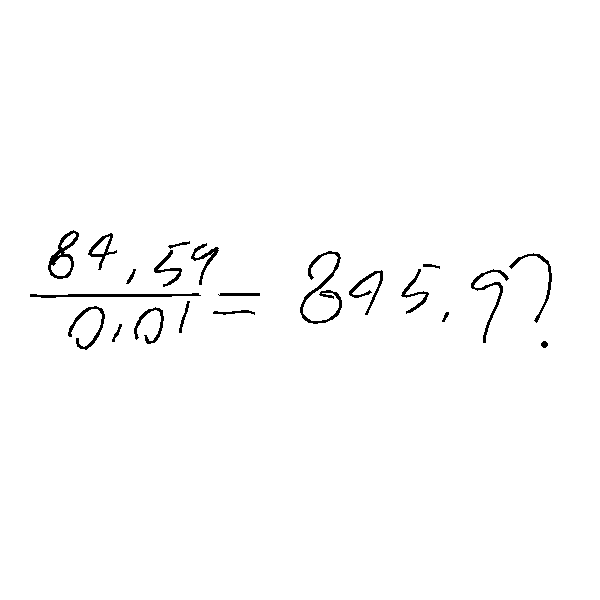 84,59
0,01 = 845,9?